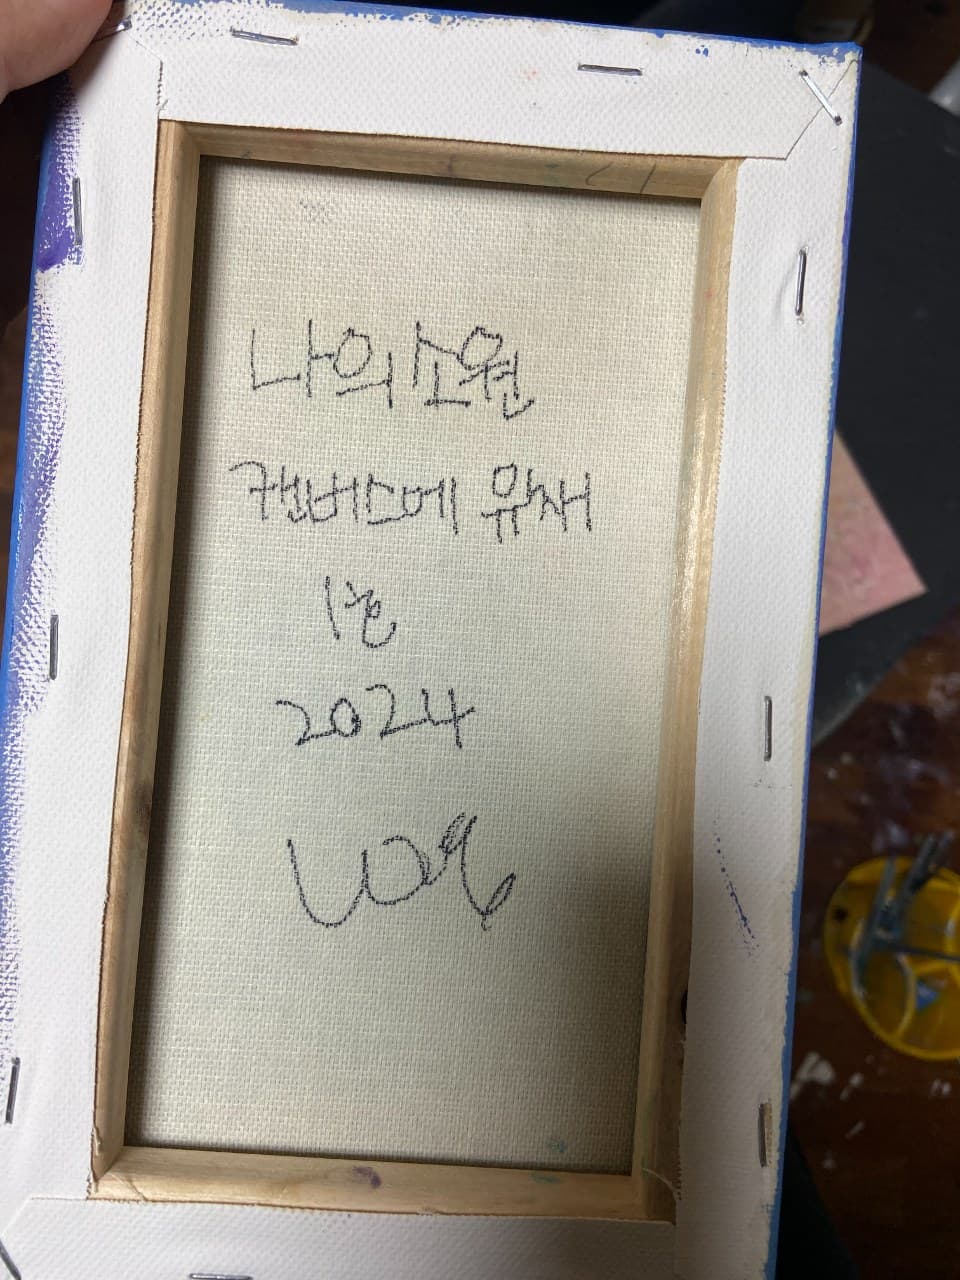 나의 소원
캔버스에 유채
1호
2024